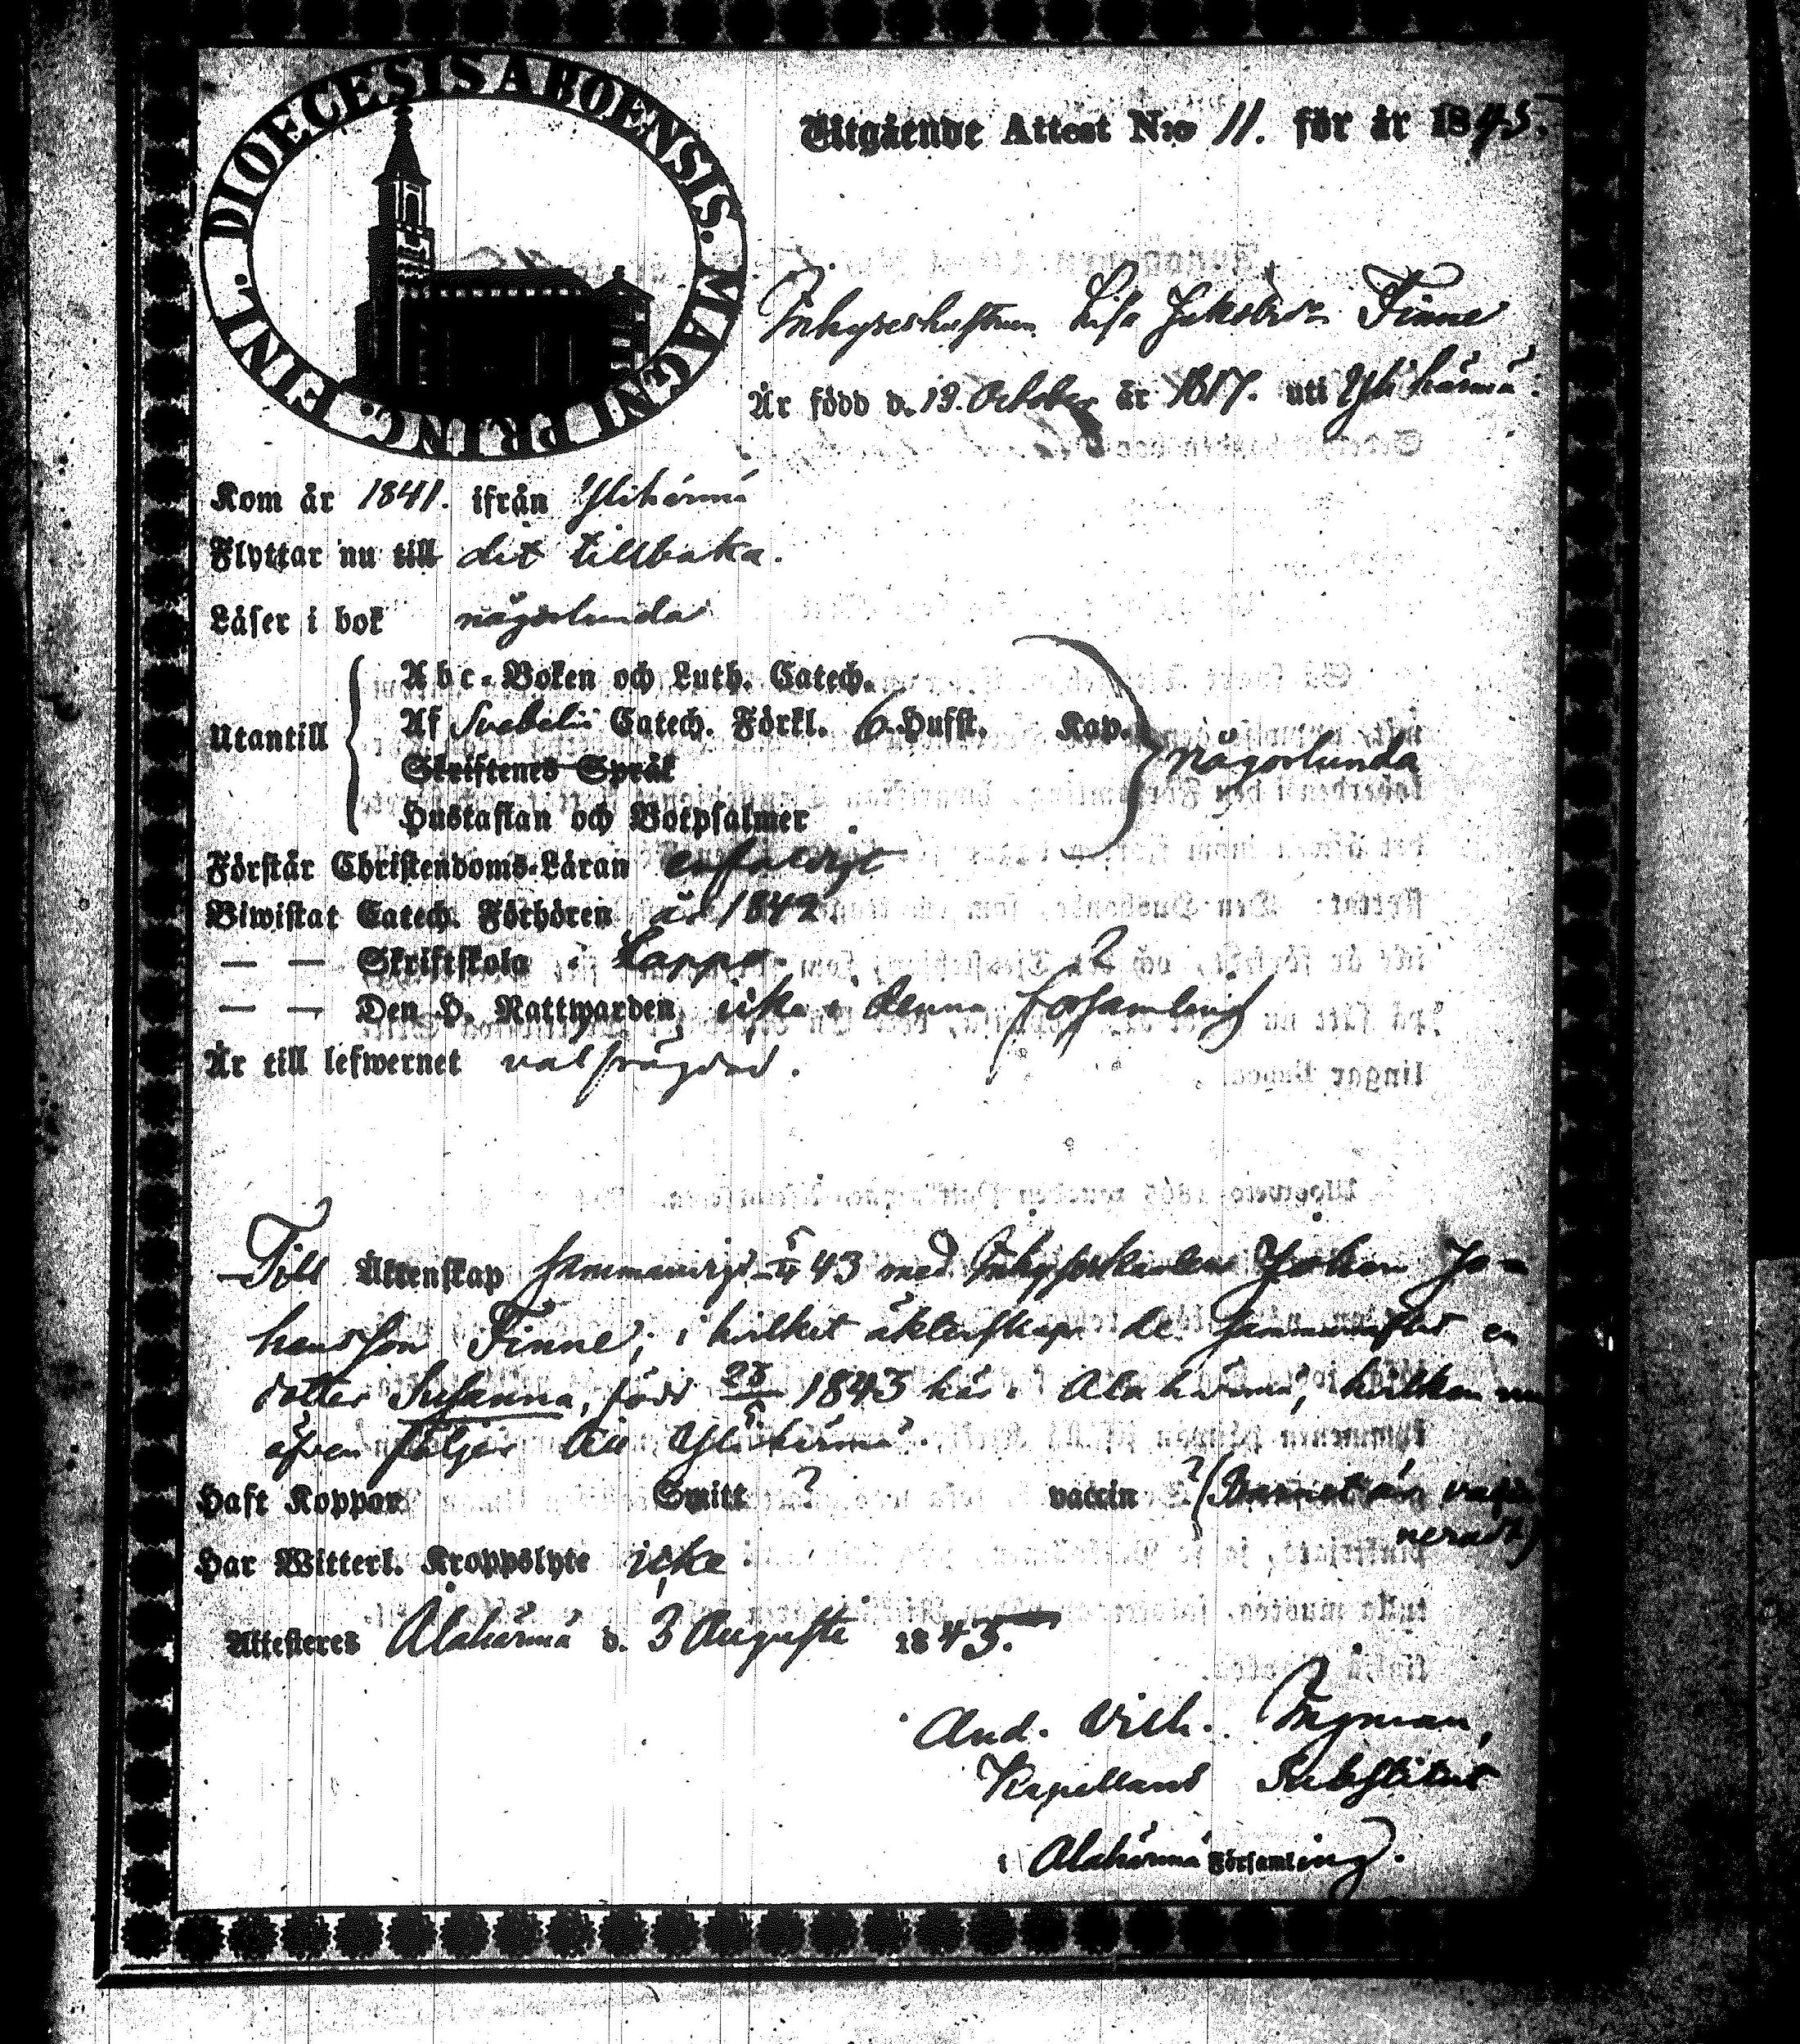 DIOECESIS ABOENSIS. MAGNI PRINC. FINL.
Utgående Attest N:o 11. för år 1845.
Inhyseshustrun Lisa Jakobsdr Finne
Är född d. 19. October år 1817. uti Ylihärmä.
Kom år 1841. ifrån Ylihärmä
Flyttar nu till dit tillbaka.
Läser i bok någorlunda
Utantill
Abc-Boken och Luth. Catech.
Af Svebelii Catech. Förkl. 6 Hufst. Kap.
Skriftenes Språk
Hustaflan och Botpsalmer
någorlunda
Förstår Christendoms-Läran enfaldigt
Biwistat Catech. Förhören år 1842
— — Skriftskola i Lappo
— — Den H. Nattwarden icke i denna församling?
Är till lefwernet välfrägdad.
Till Äktenskap sammanvigd 43 med Inhyseskarlen Johan Jo-
hansson Finne; i hvilket äktenskap de sammanaflat en
dotter Susanna, född 1843 här i Alahärmä, hvilken nu
äfven följer till Ylihärmä.
Haft Koppor Smitt ? vaccin ? (Barnet är vacci-
neradt)
Har Witterl. Kroppslyte icke
Attesteres Alahärmä d. 3 Augusti 1845.
And. Vilh. Ingman,
Kapellans Substitut
i Alahärmä Församling.